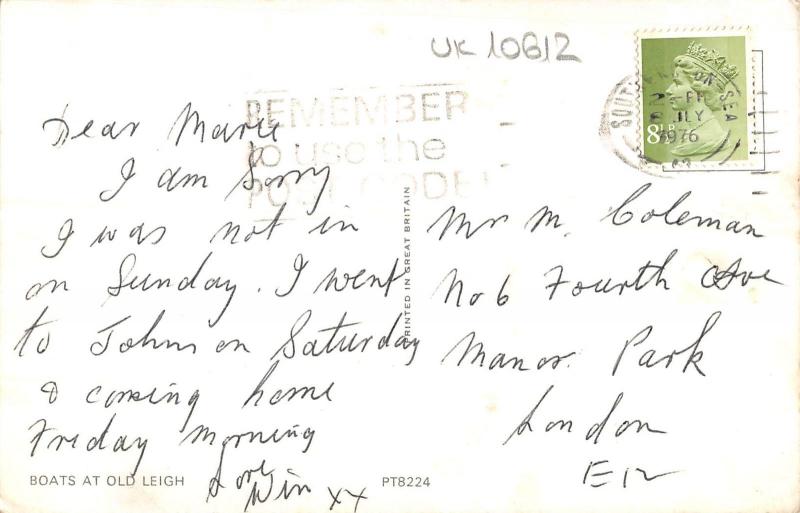 UK 10612
REMEMBER
to use the
POST CODE
SOUTHEND ON SEA
PM
JLY
1976
8½P
Dear Marie
I am Sorry
I was not in
on Sunday. I went
to Johns on Saturday
& coming home
Friday morning
Love
Win xx
PRINTED IN GREAT BRITAIN
Mr M. Coleman
No 6 Fourth Ave
Manor Park
London
E12
BOATS AT OLD LEIGH
PT8224